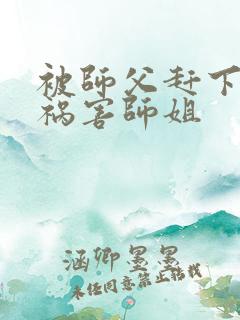 被師父赶下
祸害師姐
涵卿墨墨
未经同意禁止转载